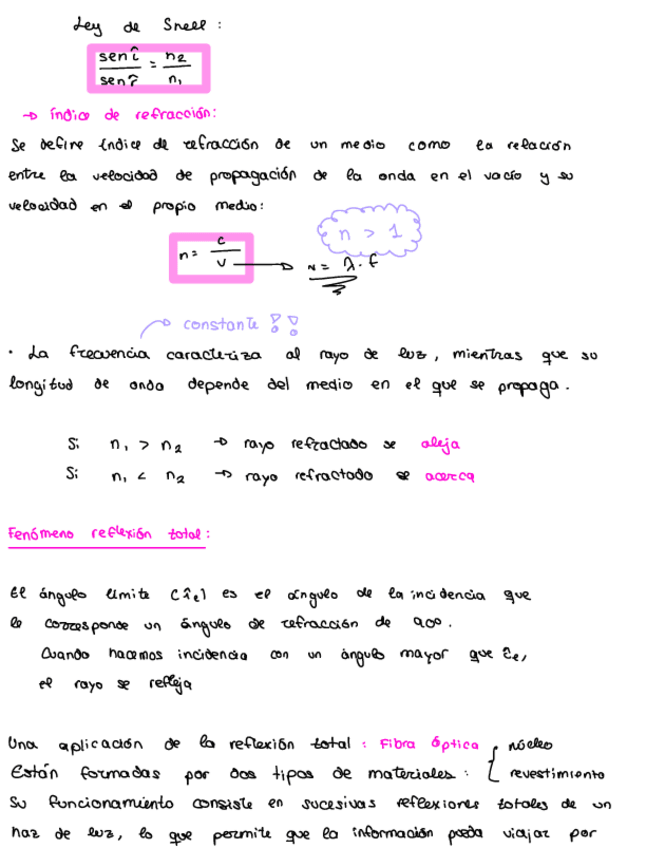 Ley de Snell:
sen î / sen r̂ = n₂ / n₁
→ índice de refracción:
Se define índice de refracción de un medio como la relación
entre la velocidad de propagación de la onda en el vacío y su
velocidad en el propio medio:
n > 1
n = c / v → v = λ · f
constante !!
· La frecuencia caracteriza al rayo de luz, mientras que su
longitud de onda depende del medio en el que se propaga.
Si n₁ > n₂ → rayo refractado se aleja
Si n₁ < n₂ → rayo refractado se acerca
Fenómeno reflexión total:
El ángulo límite (î_l) es el ángulo de la incidencia que
le corresponde un ángulo de refracción de 90º.
Cuando hacemos incidencia con un ángulo mayor que î_l,
el rayo se refleja
Una aplicación de la reflexión total: Fibra óptica { núcleo
Están formadas por dos tipos de materiales: revestimiento
Su funcionamiento consiste en sucesivas reflexiones totales de un
haz de luz, lo que permite que la información pueda viajar por